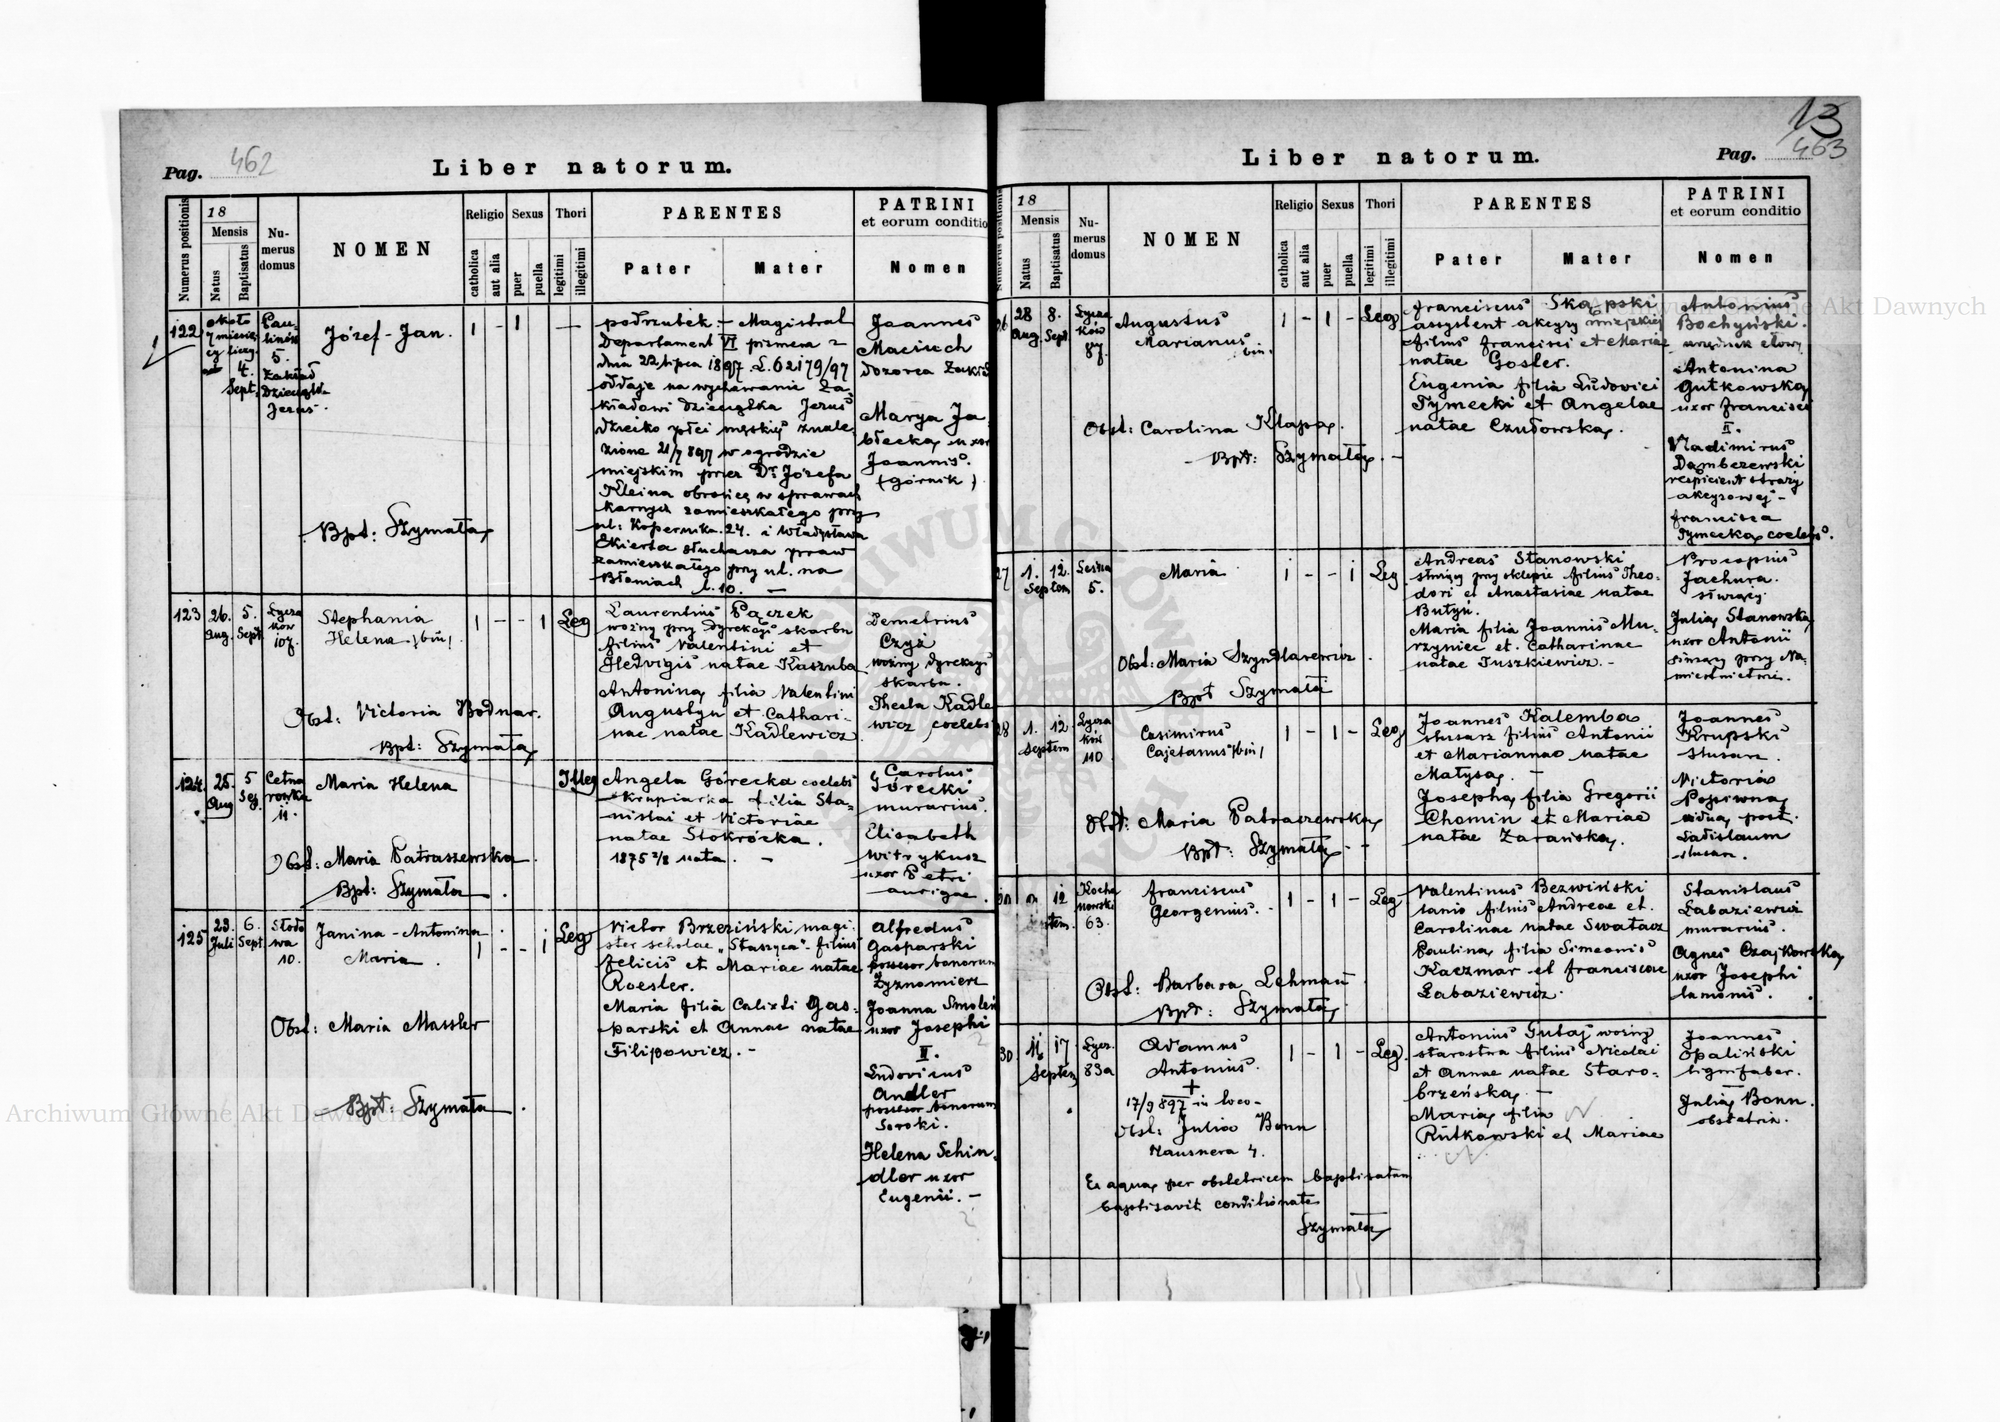 Pag. 462
Liber natorum.
Numerus positionis
18
Mensis
Natus
Baptisatus
Numerus domus
NOMEN
Religio
catholica
aut alia
Sexus
puer
puella
Thori
legitimi
illegitimi
PARENTES
Pater
Mater
PATRINI
et eorum conditio
Nomen
122
około
4.
Sept.
Pau-
linów
5.
Zakład
Dzieciątka
Jezus.
Józef-Jan.
1 - 1 —
podrzutek - Magistrat
Departament VI pismem z
dnia 22 lipca 1897 L. 62179/97
oddaje na wychowanie Za-
kładowi Dzieciątka Jezus
dziecko płci męskiej znale
zione 21/7 897 w ogrodzie
miejskim przez Dr. Józefa
Kleina obrońcę w sprawach
karnych zamieszkałego przy
ul: Kopernika 24. i Władysława
Ekierta słuchacza praw
zamieszkałego przy ul. na
Błoniach l. 10. —
Joannes
Maciuch
dozorca Zakład
Marya Ja
błecka, uxor
Joannis.
(górnik)
Bpt: Szymała
123
26.
Aug.
5.
Sept.
Łycza
kow
107.
Stephania
Helena /bin/
1 - - 1 Leg
Laurentius Pączek
woźny przy dyrekcyi skarbu
filius Valentini et
Hedvigis natae Kaszuba
Antonina, filia Valentini
Augustyn et Cathari-
nae natae Kadlewicz
Demetrius
Czyż
woźny dyrekcyi
skarbu.
Thecla Kadle
wicz, coelebs
Obst: Victoria Bodnar.
Bpt: Szymała
124.
25.
Aug
5
Sep.
Cetna
rowka
11.
Maria Helena
Illeg
Angela Górecka coelebs
krupiarka filia Sta-
nislai et Victoriae
natae Stokrocka.
1875 2/8 nata. —
Carolus
Górecki
murarius.
Elisabeth
Witrykusz
uxor Petri
aurigae.
Obst: Maria Patraszewska
Bpt: Szymała
125
23.
Juli
6.
Sept.
Słodo
wa
10.
Janina-Antonina
Maria.
1 - - 1 Leg
Victor Brzeziński magi-
ster scholae „Staszyca"- filius
Felicis et Mariae natae
Roesler.
Maria filia Calixti Gas-
parski et Annae natae
Filipowicz. -
Alfredus
Gasparski
possesor bonorum
Żyznomierz
Joanna Smoleń
uxor Josephi
II.
Ludovicus
Andler
possesor bonorum
Soroki.
Helena Schin-
dler uxor
Eugenii. —
Obst: Maria Massler
Bpt: Szymała.
13
Pag. 463
Liber natorum.
Numerus positionis
18
Mensis
Natus
Baptisatus
Numerus domus
NOMEN
Religio
catholica
aut alia
Sexus
puer
puella
Thori
legitimi
illegitimi
PARENTES
Pater
Mater
PATRINI
et eorum conditio
Nomen
26
28
Aug.
8.
Sept
Łycza
ków
Augustus
Marianus
bin.
1 - 1 - Leg
Franciscus Skarpski
assystent akcyzy miejskiej
filius Francisci et Mariae
natae Gosler.
Eugenia filia Ludovici
Tymecki et Angelae
natae Czudowska.
Antonius
Bochyński.
urzędnik
Antonina
Gutkowska,
uxor Francisci
II.
Vladimirus
Dambczewski
respicient straży
akcyzowej -
Francisca
Tymecka, coelebs.
Obst: Carolina Kłapa.
Bpt: Szymała. -
27
1.
12.
Septem
Leśna
5.
Maria
1 - - 1 Leg
Andreas Stanowski
służący przy sklepie filius Theo-
dori et Anastasiae natae
Butyń.
Maria filia Joannis Mu-
rzyniec et Catharinae
natae Tuszkiewicz. -
Procopius
Jachura.
służący
Julia, Stanowska,
uxor Antonii
przy Na-
miestnictwie.
Obst: Maria Szyndlarewicz.
Bpt Szymała
28
1.
12
Septem
Łycza
ków
110
Casimirus
Cajetanus /bin/
1 - 1 - Leg
Joannes Kalemba
slusarz filius Antonii
et Mariannae natae
Małysa. —
Josepha, filia Gregorii
Chomin et Mariae
natae Zarańska.
Joannes
Krupski
slusarz.
Victoria
Popiwna,
vidua, post.
Ladislaum
slusarz.
Obst: Maria Patraszewska,
Bpt: Szymała. -
12
tem.
Kocha
nowski
63.
Franciscus
Georgenius.
1 - 1 - Leg
Valentinus Bezwiński
lanio filius Andreae et
Carolinae natae Swatacz
Paulina, filia Simeonis
Kaczmar et Franciscae
Łabaziewicz.
Stanislaus
Łabaziewicz
murarius.
Agnes Czajkowska,
uxor Josephi
lanionis.
Obst: Barbara Lehman
Bpt: Szymała.
30
11
17
Septem
Łycz.
83a
Adamus
Antonius.
+
17/9 897 in loco-
Obst: Julia Bonn
Hausnera 4.
1 - 1 - Leg.
Antonius Gutaj woźny
starostwa filius Nicolai
et Annae natae Staro-
brzeńska. —
Maria, filia
Rutkowski et Mariae
Joannes
Opaliński
lignifaber.
Julia, Bonn
obstetrix.
Ex aqua, per obstetricem baptisatum
baptisavit conditionate
Szymała,
Archiwum Główne Akt Dawnych
Archiwum Główne Akt Dawnych